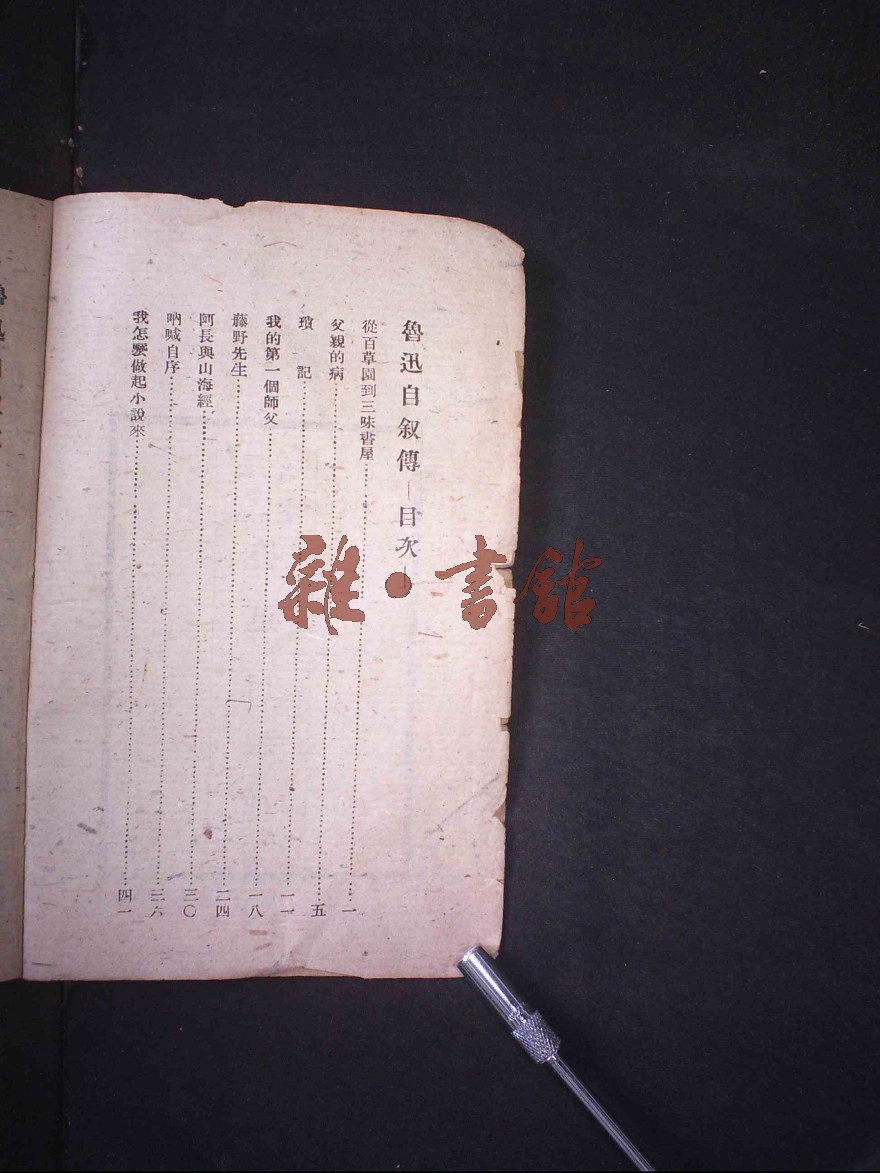 魯迅自叙傳—目次—
從百草園到三味書屋……一
父親的病……五
瑣記……一一
我的第一個師父……一八
藤野先生……二四
阿長與山海經……三〇
吶喊自序……三六
我怎麼做起小說來……四一
雜·書館